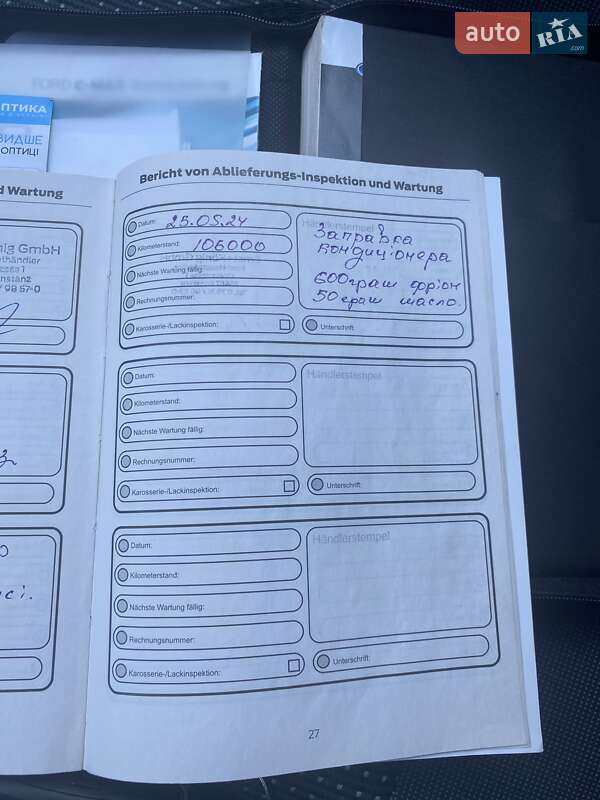 auto
RIA
.com
ПТИКА
ВИДШЕ
ОПТИЦІ
d Wartung
nig GmbH
Bericht von Ablieferungs-Inspektion und Wartung
Datum: 25.05.24
Kilometerstand: 106000
Nächste Wartung fällig:
Rechnungsnummer:
Karosserie-/Lackinspektion:
Händlerstempel
Заправка
кондиціонера
600грам фріон
50 грам масло.
Unterschrift:
Datum:
Kilometerstand:
Nächste Wartung fällig:
Rechnungsnummer:
Karosserie-/Lackinspektion:
Händlerstempel
Unterschrift:
Datum:
Kilometerstand:
Nächste Wartung fällig:
Rechnungsnummer:
Karosserie-/Lackinspektion:
Händlerstempel
Unterschrift:
27